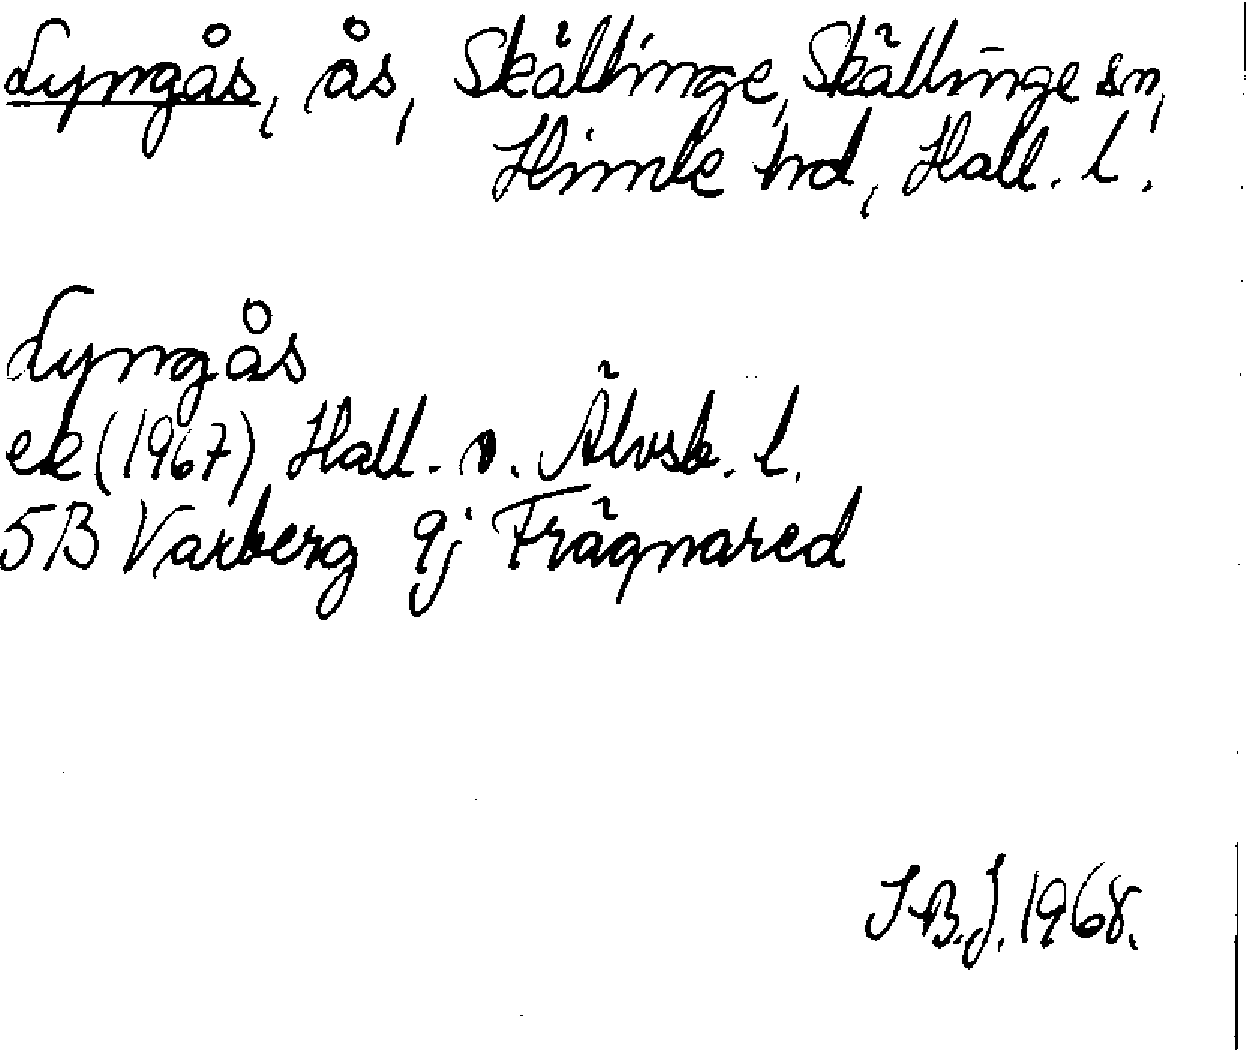 Lyngås, ås, Skällinge, Skällinge sn,
Himle hd, Hall. l.
Lyngås
ek (1967) Hall. o. Älvsb. l.
5B Varberg 9j Frägnared
I.B.J. 1968.